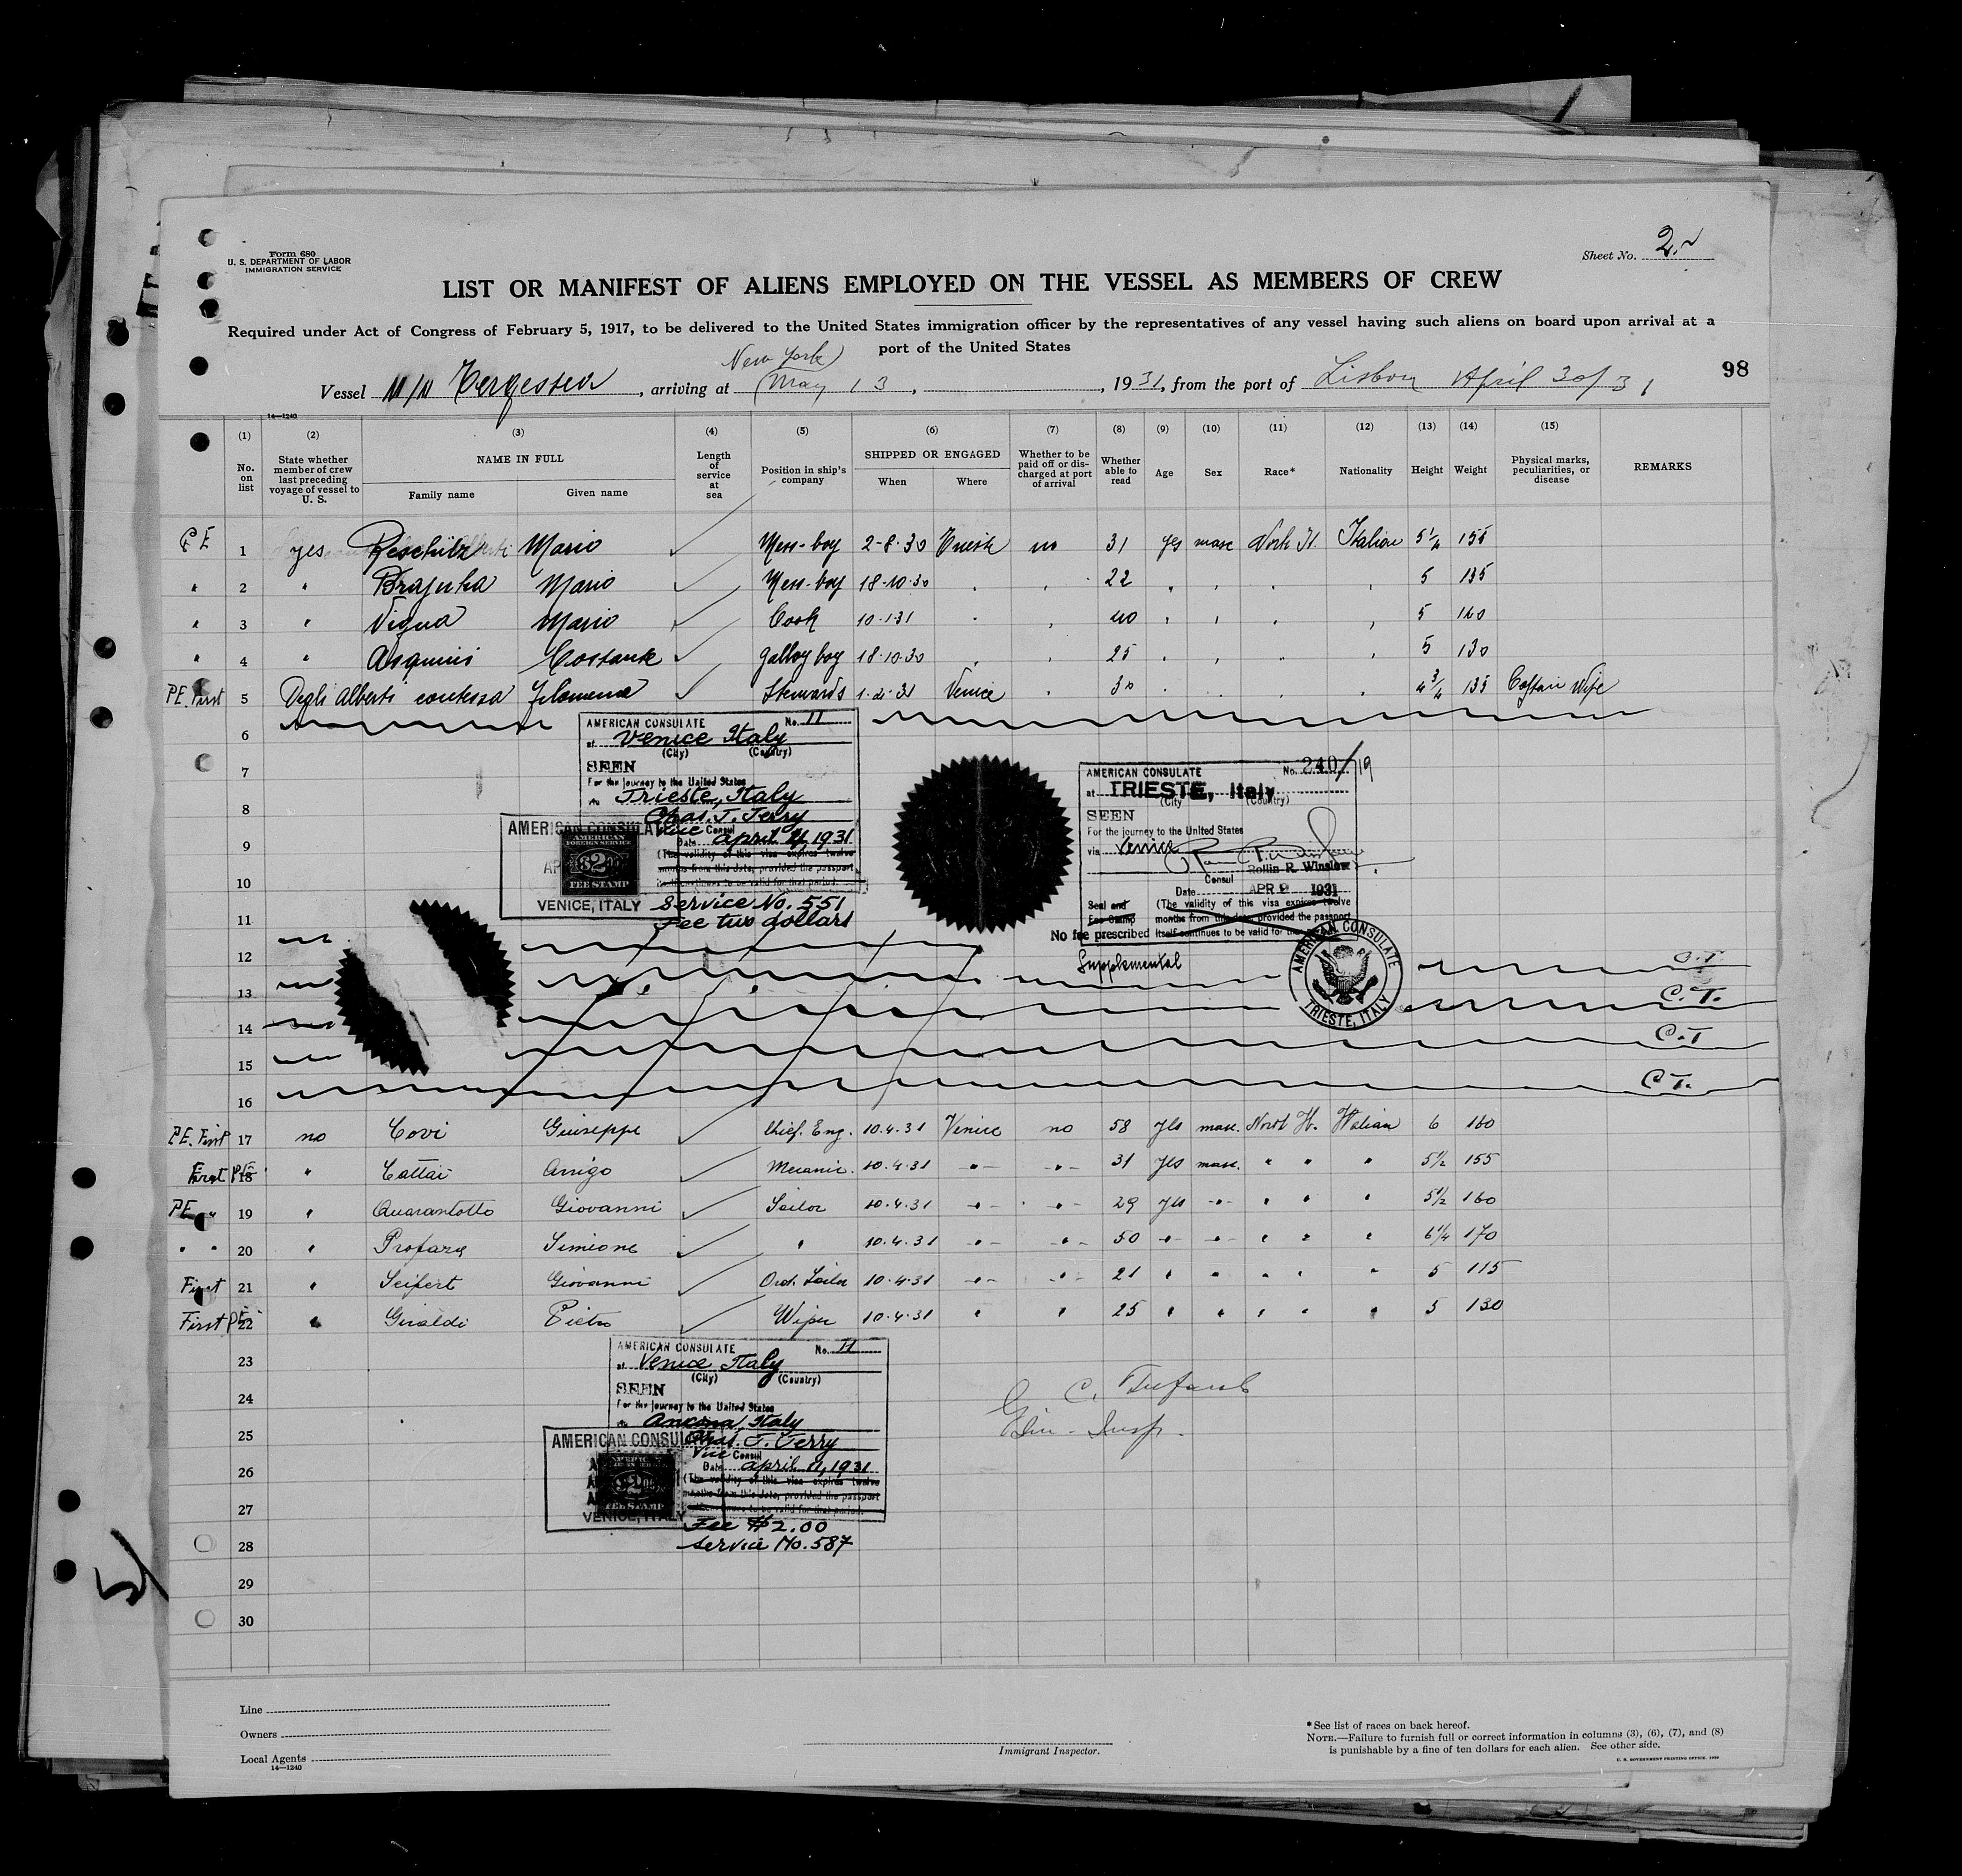 Form 680
U. S. DEPARTMENT OF LABOR
IMMIGRATION SERVICE
Sheet No. 2
LIST OR MANIFEST OF ALIENS EMPLOYED ON THE VESSEL AS MEMBERS OF CREW
Required under Act of Congress of February 5, 1917, to be delivered to the United States immigration officer by the representatives of any vessel having such aliens on board upon arrival at a
port of the United States
New York
98
Vessel M/N Tergestea, arriving at May 13, 1931, from the port of Lisbon April 30/31
14—1240
(1) (2) (3) (4) (5) (6) (7) (8) (9) (10) (11) (12) (13) (14) (15)
No. on list State whether member of crew last preceding voyage of vessel to U. S. NAME IN FULL Family name Given name Length of service at sea Position in ship's company SHIPPED OR ENGAGED When Where Whether to be paid off or discharged at port of arrival Whether able to read Age Sex Race* Nationality Height Weight Physical marks, peculiarities, or disease REMARKS
1 yes Mario Mess-boy 2-8-30 Trieste no 31 yes masc North It. Italian 5 1/4 155
" 2 " Brajuka Mario Mess-boy 18-10-30 22 5 135
" 3 " Vigna Mario Cook 10-1-31 40 5 140
" 4 " Asquini Costante Galley boy 18-10-30 25 5 130
PE. First 5 Degli Alberti contessa Filomena Stewards 1-2-31 Venice 30 4 3/4 135 Captain Wife
6
7
8
9
10
11
12
13
14
15
16
AMERICAN CONSULATE No. 11
at Venice Italy
(City) (Country)
SEEN
For the journey to the United States
via Trieste, Italy
Chas. J. Terry
Vice Consul
Date April 4, 1931
(The validity of this visa expires twelve
months from this date, provided the passport
itself continues to be valid for that period.
AMERICAN CONSULATE
AMERICAN FOREIGN SERVICE
$2.00
FEE STAMP
VENICE, ITALY
Service No. 551
Fee two dollars
AMERICAN CONSULATE No. 240/19
at TRIESTE, Italy
(City (Country)
SEEN
For the journey to the United States
via Venice
Rollin R. Winslow
Consul
Date APR 1931
Seal and (The validity of this visa expires twelve
Fee Stamp months from this date, provided the passport
No fee prescribed itself continues to be valid for that
Supplemental
AMERICAN CONSULATE
TRIESTE, ITALY
C.T.
C.T.
C.T
C T.
PE. First 17 no Covi Giuseppe Chief. Eng. 10.4.31 Venice no 58 yes masc. North It. Italian 6 160
First PE 18 " Cattai Arrigo Mecanic. 10.4.31 31 yes masc. " " " 5 1/2 155
PE " 19 " Quarantotto Giovanni Sailor 10.4.31 29 yes 5 1/2 160
" " 20 " Simeone " 10.4.31 50 6 1/4 170
First 21 " Seifert Giovanni Ord. Sailor 10.4.31 21 5 115
First PE 22 " Giraldi Pietro Wiper 10.4.31 25 5 130
23
24
25
26
27
28
29
30
AMERICAN CONSULATE No. 11
at Venice Italy
(City) (Country)
SEEN
For the journey to the United States
via Ancona, Italy
Chas. J. Terry
Vice Consul
Date April 11, 1931
(The validity of this visa expires twelve
months from this date, provided the passport
AMERICAN CONSULATE
$2.00
FEE STAMP
VENICE, ITALY
Fee $2.00
Service No. 587
Line
Owners
Local Agents
14—1240
Immigrant Inspector.
*See list of races on back hereof.
NOTE.—Failure to furnish full or correct information in columns (3), (6), (7), and (8)
is punishable by a fine of ten dollars for each alien. See other side.
U. S. GOVERNMENT PRINTING OFFICE: 1929